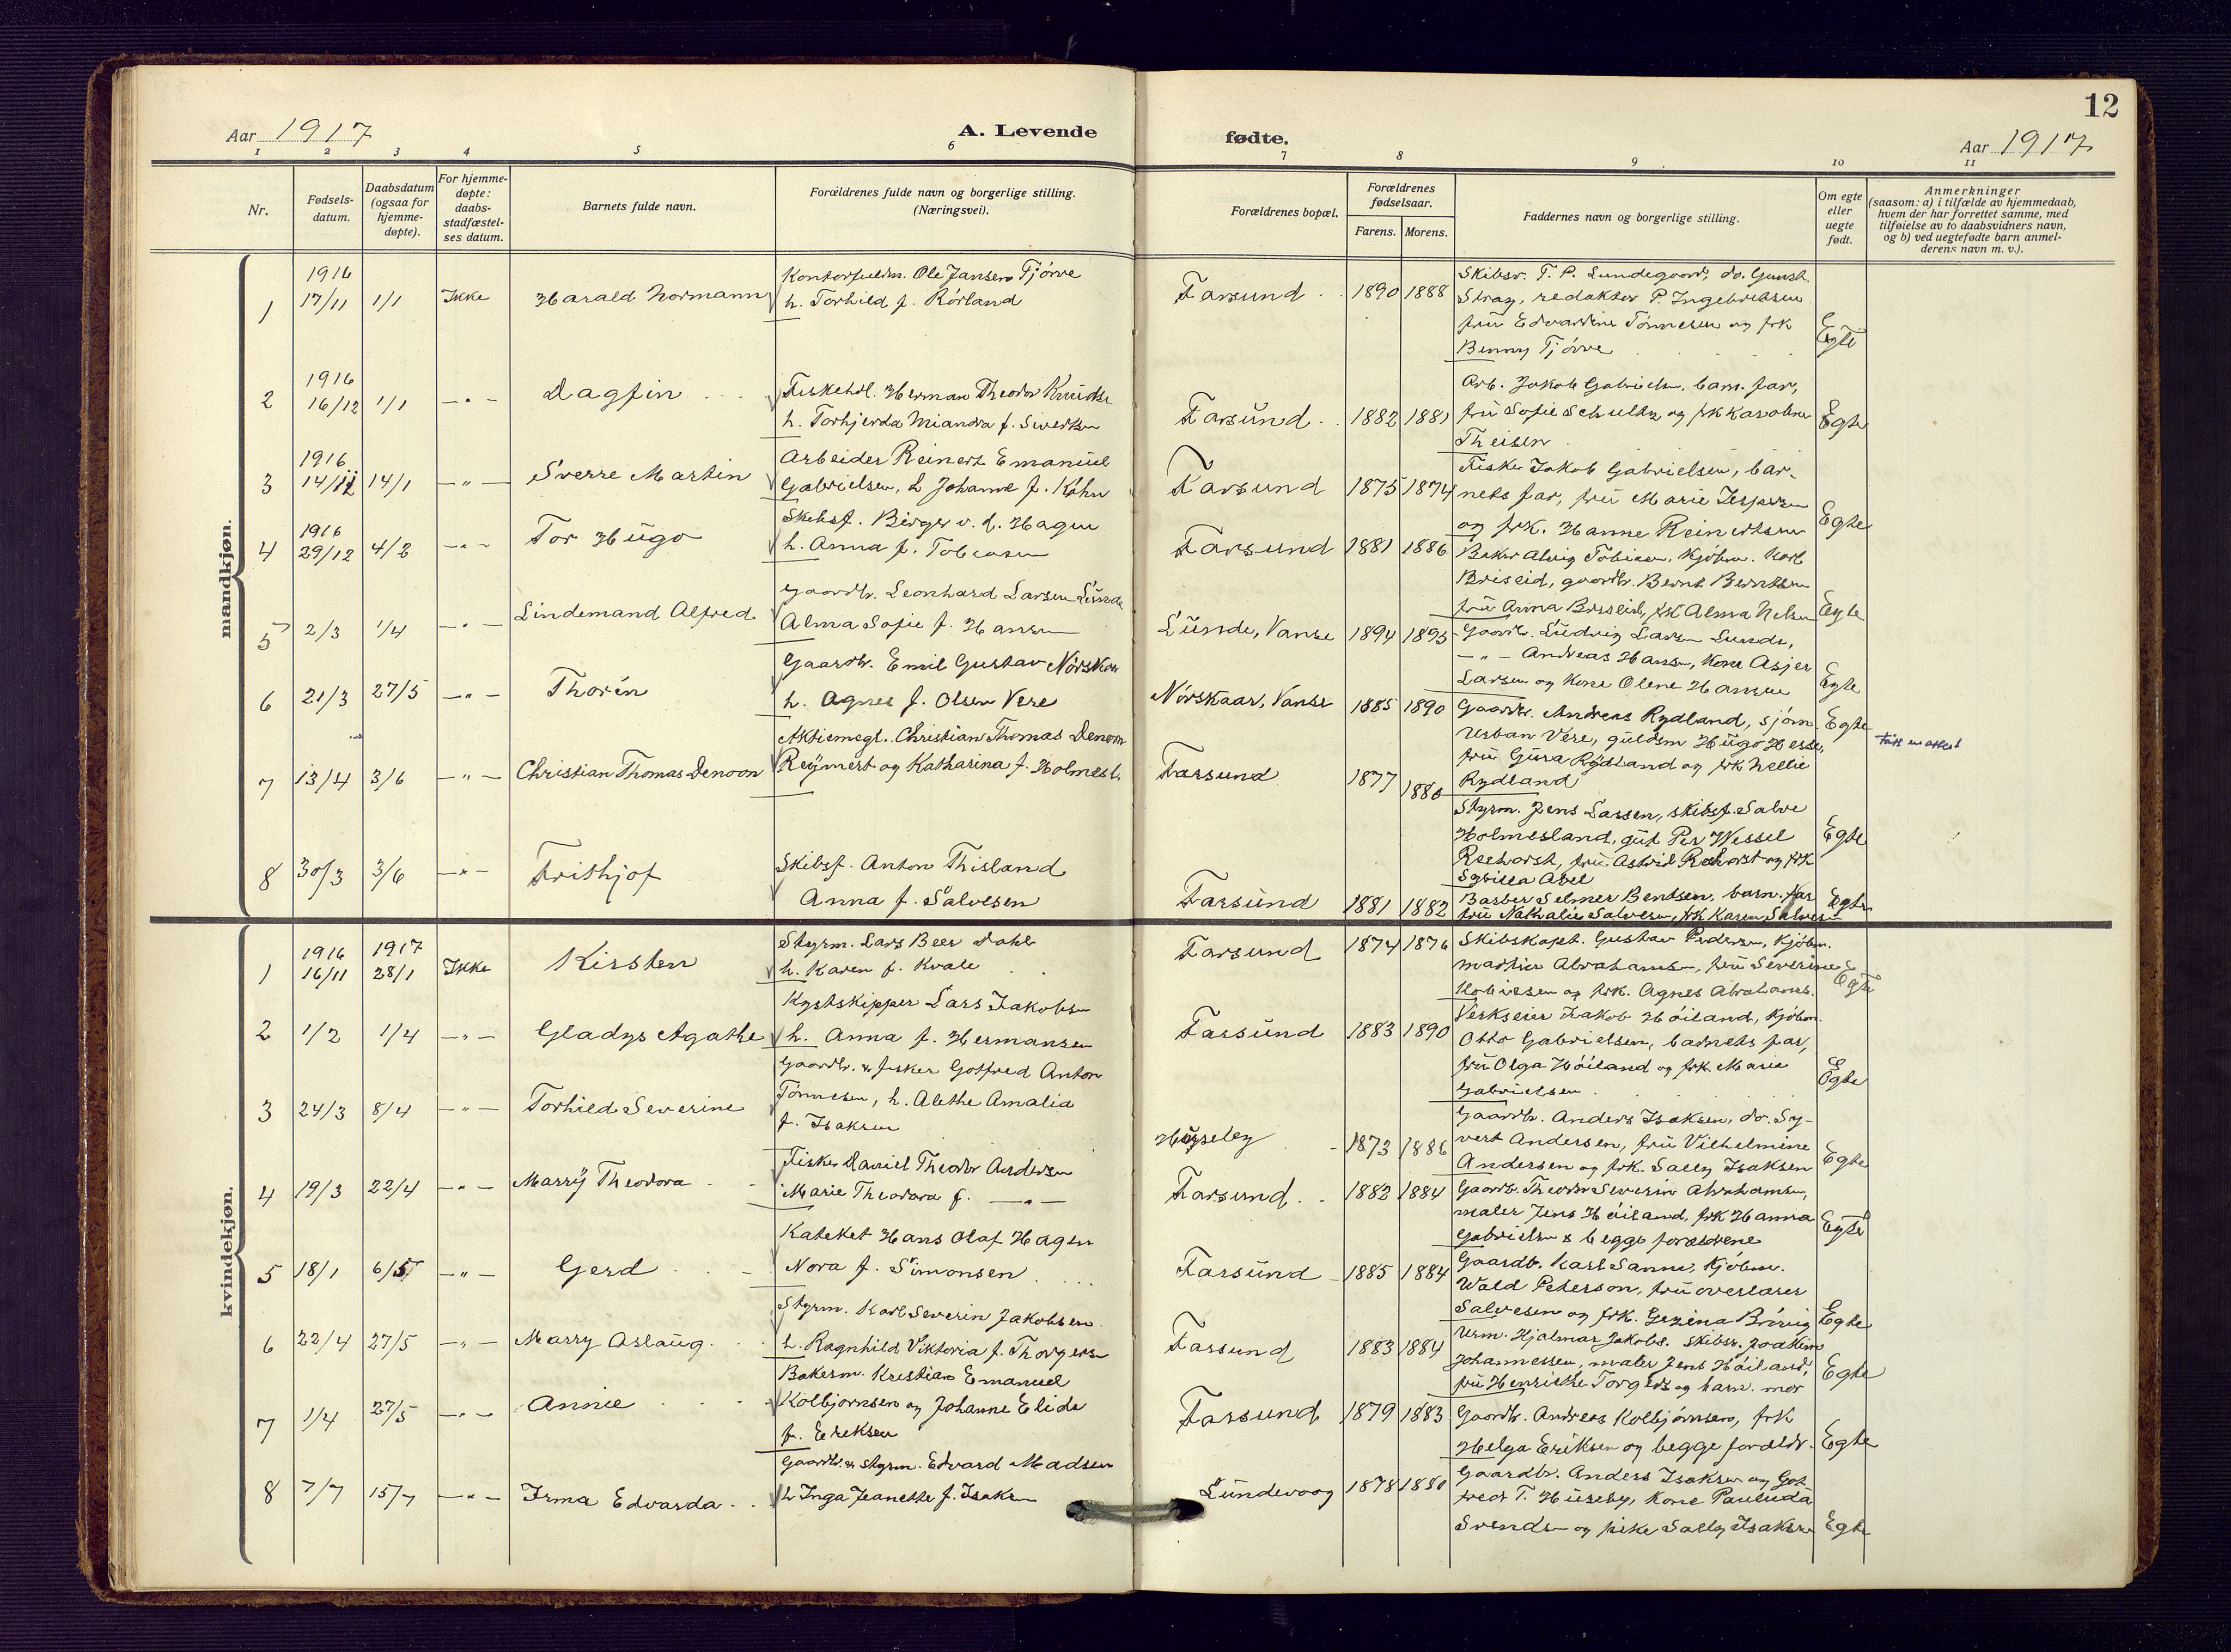 12
Aar 1917
A. Levende
fødte.
Aar 1917
1 2 3 4 5 6 7 8 9 10 11
Nr.
Fødsels-
datum.
Daabsdatum
(ogsaa for
hjemme-
døpte).
For hjemme-
døpte:
daabs-
stadfæstel-
ses datum.
Barnets fulde navn.
Forældrenes fulde navn og borgerlige stilling.
(Næringsvei).
Forældrenes bopæl.
Forældrenes
fødselsaar.
Farens. Morens.
Faddernes navn og borgerlige stilling.
Om egte
eller
uegte
født.
Anmerkninger
(saasom: a) i tilfælde av hjemmedaab,
hvem der har forrettet samme, med
tilføielse av to daabsvidners navn,
og b) ved uegtefødte barn anmel-
derens navn m. v.).
mandkjøn.
1
1916
17/11
1/1
Ikke
Harald Normann
Ole Jansen Tjørve
h. Torhild f. Rørland
Farsund
1890 1888
Skibsr. T. P. Lundegaard, do. Gunst.
Stray, redaktør P. Ingebretsen
frü Edvardine Tønnesen og frk
Benny Tjørve
Egte
2
1916
16/12
1/1
— " —
Dagfin
Fiskehdl. Herman Theodor
h. Torhjerda Miandra f. Sivertsen
Farsund
1882 1881
Arb. Jakob Gabrielsen, barn. far,
frü Sofie Schultz og frk Karoline
Theisen
Egte
3
1916
14/12
14/1
— " —
Sverre Martin
Arbeider Reinert Emanuel
Gabrielsen, h Johanne f.
Farsund
1875 1874
Fisker Jakob Gabrielsen, bar-
nets far, frü Marie Jespersen
og frk. Hanne Reinertsen
Egte
4
1916
29/12
4/2
— " —
Tor Hügo
Skibsf. Birger v. d. Hagen
h. Anna f. Tobiasen
Farsund
1881 1886
Baker Tobiasen, Kjøbm. Karl
Briseid, gaardbr. Bernt Berntsen
frü Anna Briseid, frk Alma Nelsen
Egte
5
2/3
1/4
— " —
Lindemand Alfred
Gaardbr. Leonhard Larsen Lünde
Alma Sofie f. Hansen
Lünde, Vanse
1894 1895
Gaardb. Lüdvig Larsen Lunde,
— " — Andreas Hansen, Kone Asjer
Larsen og Kone Olene Hansen
Egte
6
21/3
27/5
— " —
Thorén
Gaardbr. Emil Gustav Nørskaar
h. Agnes f. Olsen Vere
Nørskaar, Vanse
1885 1890
Gaardbr. Andreas Rydland, sjøm
Urban Vere, guldsm Hügo Hesse,
frü Güra Rydland og frk Nellie
Rydland
Egte
7
13/4
3/6
— " —
Christian Thomas Denoon
Aktiemegl. Christian Thomas Denoon
Reymert og Katharina f. Holmesl.
Farsund
1877 1880
Styrm. Jens Larsen, skibsf. Salve
Holmesland, güt Per Wessel
Reehorst, frü Astrid Reehorst og frk
Sybilla Abel
Egte
Født en attest
8
30/3
3/6
— " —
Frithjof
Skibsf. Anton Thisland
Anna f. Salvesen
Farsünd
1881 1882
Barber Selmer Bentsen, barn. far
frü Nathalie Salvesen, frk Karen Salvesen
Egte
kvindekjøn.
1
1916
16/11
1917
28/1
Ikke
Kirsten
Styrm. Lars Beer Dahl
h. Karen f. Kvale
Farsund
1874 1876
Skibskapt. Gustav Pedersen, Kjøbm.
Mathias Abrahamsen, frü Severine
og frk. Agnes Abrahams.
Egte
2
1/2
1/4
— " —
Gladys Agathe
Kystskipper Lars Jakobsen
h. Anna f. Hermansen
Farsünd
1883 1890
Verkseier Jakob Høiland, Kjøbm.
Otto Gabrielsen, barnets far,
frü Olga Høiland og frk. Marie
Gabrielsen
Egte
3
24/3
8/4
— " —
Torhild Severine
Gaardbr. & fisker Gotfred Anton
Tønnesen, h. Alethe Amalia
f. Isaksen
Hüseby
1873 1886
Gaardbr. Anders Isaksen, do. Sy-
vert Andersen, frü Vilhelmine
Andersen og frk. Sally Isaksen
Egte
4
19/3
22/4
— " —
Marry Theodora
Fisker Daniel Theodor Andersen
Marie Theodora f. — " —
Farsund
1882 1884
Gaardb. Theodor Severin Abrahamsen,
maler Jens Høiland, frk Hanna
Gabrielsen & begge forældrene
Egte
5
18/1
6/5
— " —
Gerd
Kateket Hans Olaf Hagen
Nora f. Simonsen
Farsünd
1885 1884
Gaardb. Karl Sanne, Kjøbm.
Wald Peterson, frü overlærer
Salvesen og frk. Gezina Brøvig
Egte
6
22/4
27/5
— " —
Marry Aslaüg
Styrm. Karl Severin Jakobsen
h. Ragnhild Viktoria f. Thorgersen
Farsund
1883 1884
Urm. Hjalmar Jakobs. Skibsr. Joakim
Johannessen, maler Jens Høiland,
frü Henriette Torgers og barn. mor
Egte
7
1/4
27/5
— " —
Annie
Bakerm. Kristian Emanuel
Kolbjørnsen og Johanne Elide
f. Eriksen
Farsund
1879 1883
Gaardbr. Andreas Kolbjørnsen, frk
Helga Eriksen og begge forældr.
Egte
8
7/7
15/7
— " —
Irma Edvarda
Gaardbr. & styrm. Edvard Madsen
h Inga Jeanette f. Isaksen
Lündevaag
1878 1880
Gaardbr. Anders Isaksen og Got
fred T. Hüseby, Kone Paulüda
Svendsen og pike Sally Isaksen
Egte